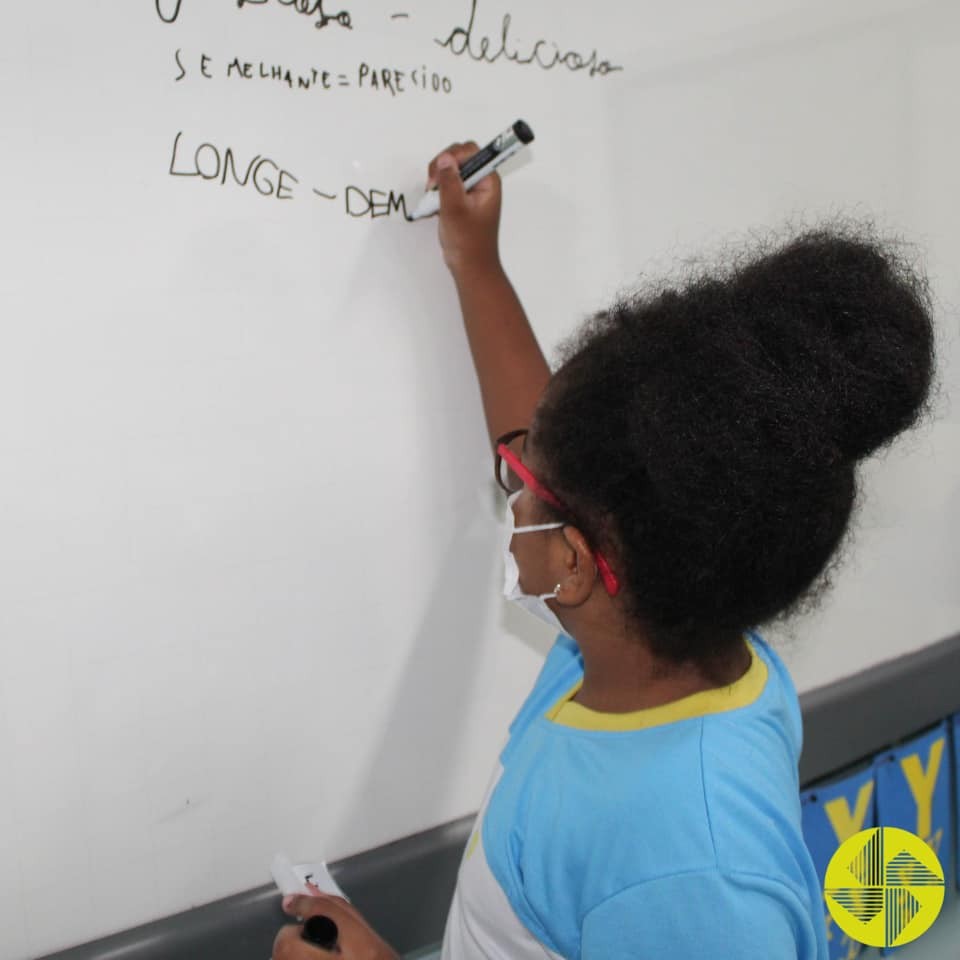 - delicioso
SEMELHANTE = PARECIDO
LONGE - DEM
Y Y